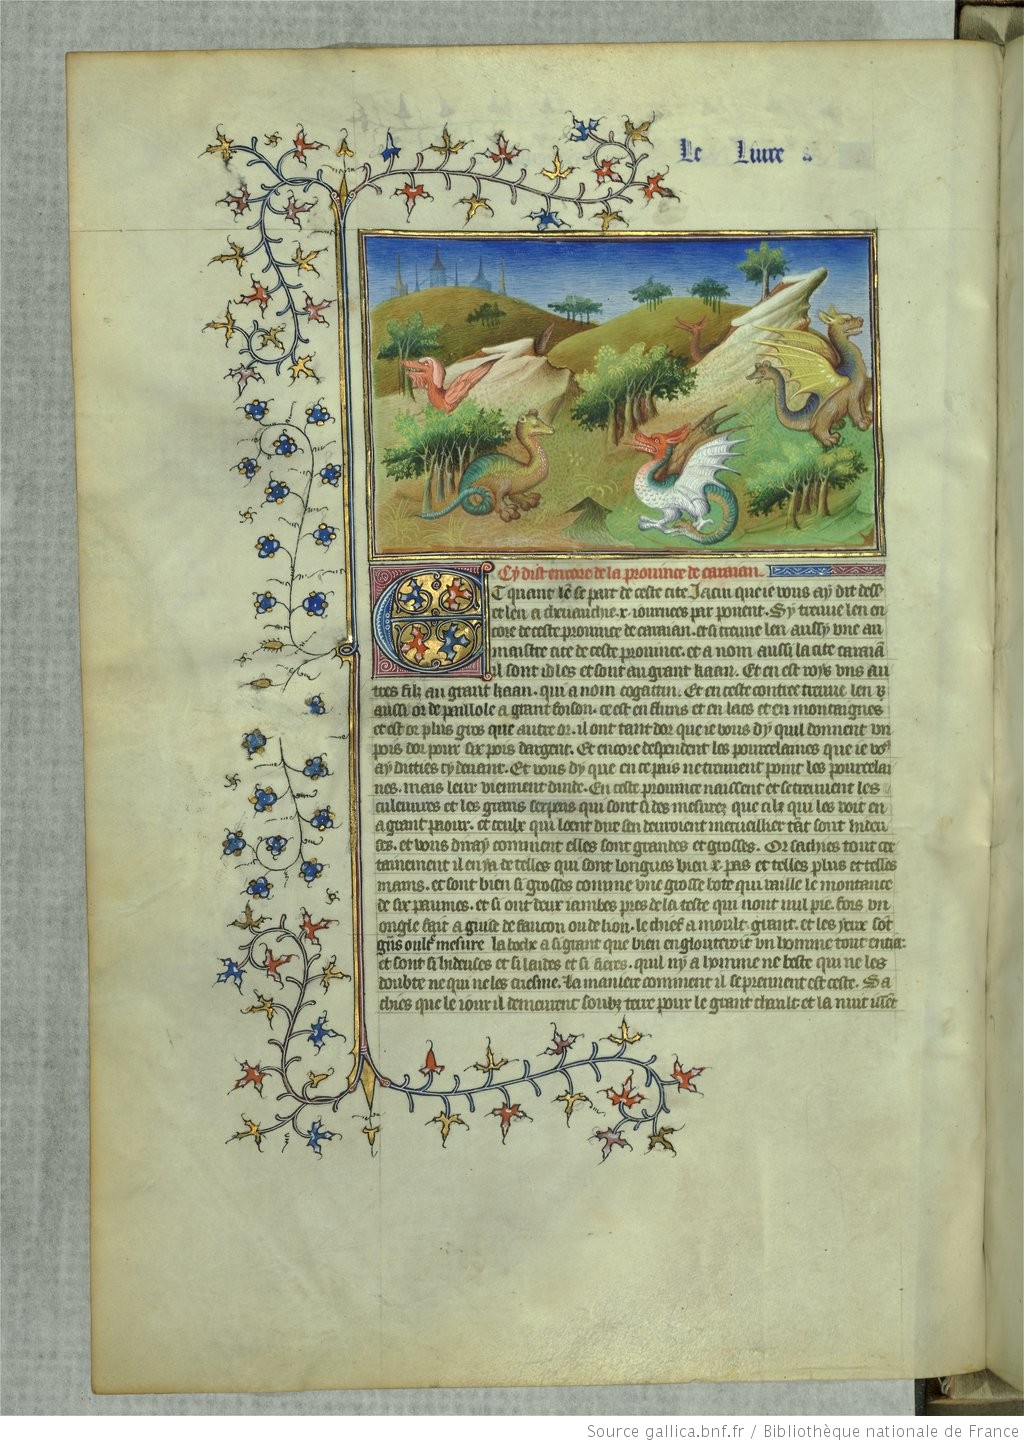 Le Liure d
Cy dist encore de la prouince de caraian.
Et quant len se part de ceste cite Iacin que ie vous ay dit dess9
et len a cheuauchie .x. iournees par ponent. Sy treuue len en
core de ceste prouince de caraian. et si treuue len aussy vne au
maistre cite de ceste prouince. et a nom aussi la cite caraiā
il sont idles et sont au grant kaan. Et en est roys vns au
tres filz au grant kaan. qui a nom cogatim. Et en ceste contree treuue len
aussi or de paillole a grant foison. ce est en fluns et en lacs et en montaignes
et est or plus gros que autre or. il ont tant dor que ie vous dy quil donnent vn
pois dor pour six pois dargent. Et encore despendent les pourcelaines que ie vo9
ay dittes cy deuant. Et vous dy que en ce pais ne treuuent point les pourcelai
nes. mais leur viennent dinde. En ceste prouince naissent et se treuuent les
culeuures et les grans serpens qui sont si des mesurez que cilz qui les voit en
a grant paour. et ceulx qui loent dire sen deuroient merueillier tāt sont hideu
ses. et vous diray comment elles sont grandes et grosses. Or sachies tout cer
tainement il en ya de telles qui sont longues bien .x. pas et telles plus et telles
mains. et sont bien si grosses comme vne grosse bote qui vaille le montance
de six paumes. et si ont deux iambes pres de la teste qui nont nul pie. fors vn
ongle fait a guise de faucon ou de lion. le chief a moult grant. et les yeux sōt
gñs oultˢ mesure la boche a si grant que bien engloutiroit vn homme tout entier.
et sont si hideuses et si laides et si fieres. quil ny a homme ne beste qui ne les
doubte ne qui ne les criesme. la maniere comment il se prennent est ceste. Sa
chies que le iour il demeurent soubz terre pour le grant chault et la nuit issēt